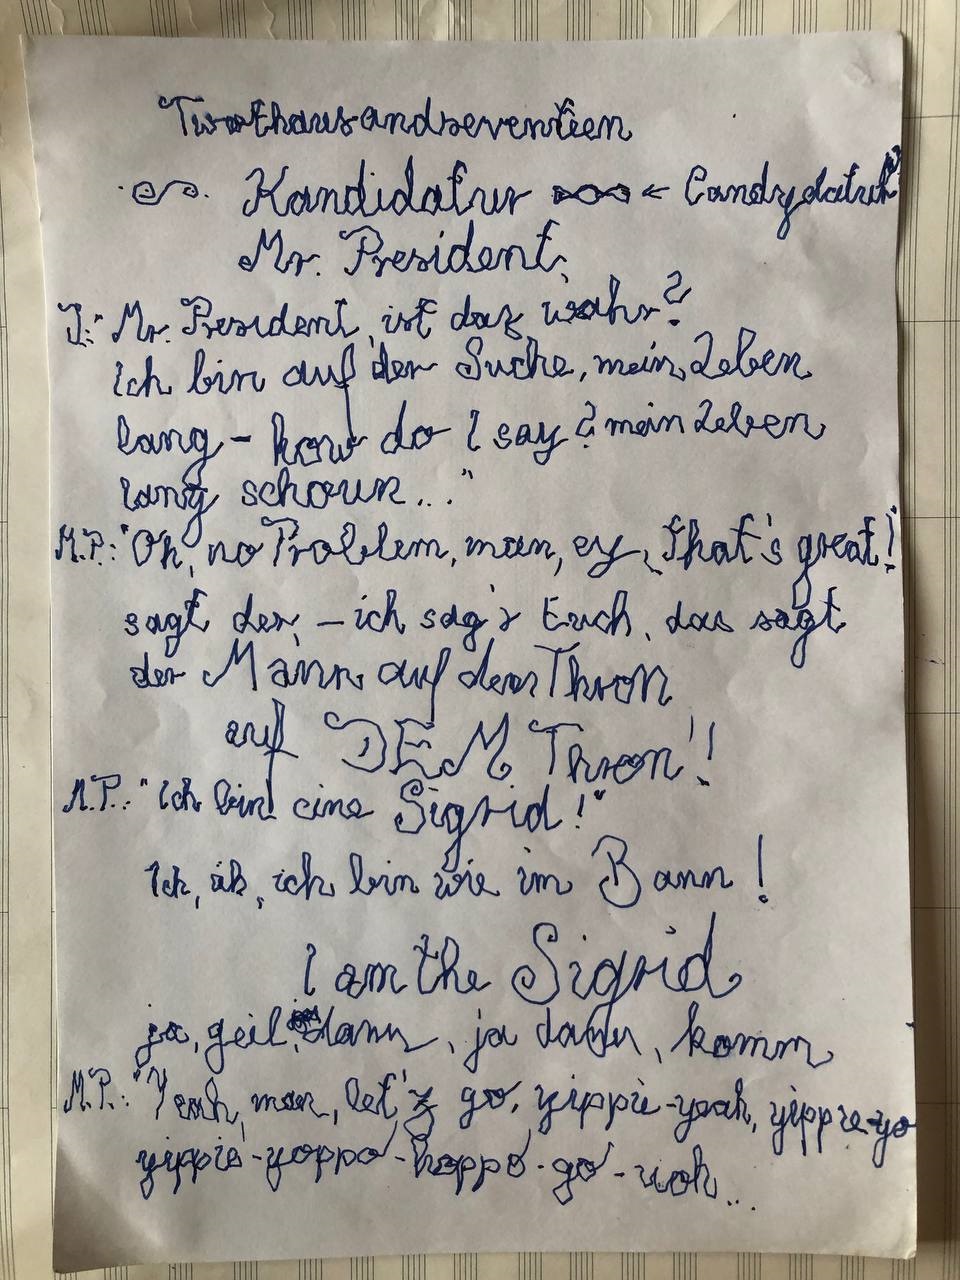 Twothausandseventeen
Kandidatur ← Candydatur
Mr. President,
I: "Mr. President, ist daz wahr?
Ich bin auf der Suche, mein Leben
lang - how do I say? mein Leben
lang schoun..."
M.P.: "Oh, no Problem, man, ey, that's great!
sagt der, - ich sag's Euch, das sagt
der Mann auf dem Thron
auf DEM Thron!!
M.P.: "Ich bin eine Sigrid!"
Ich, äh, ich bin wie im Bann!
I am the Sigrid
ja, geil, dann, ja dann, komm
M.P.: "Yeah, man, let'z go, yippie-yeah, yippie-yo
yippie-yoppo-hoppo-go-woh...